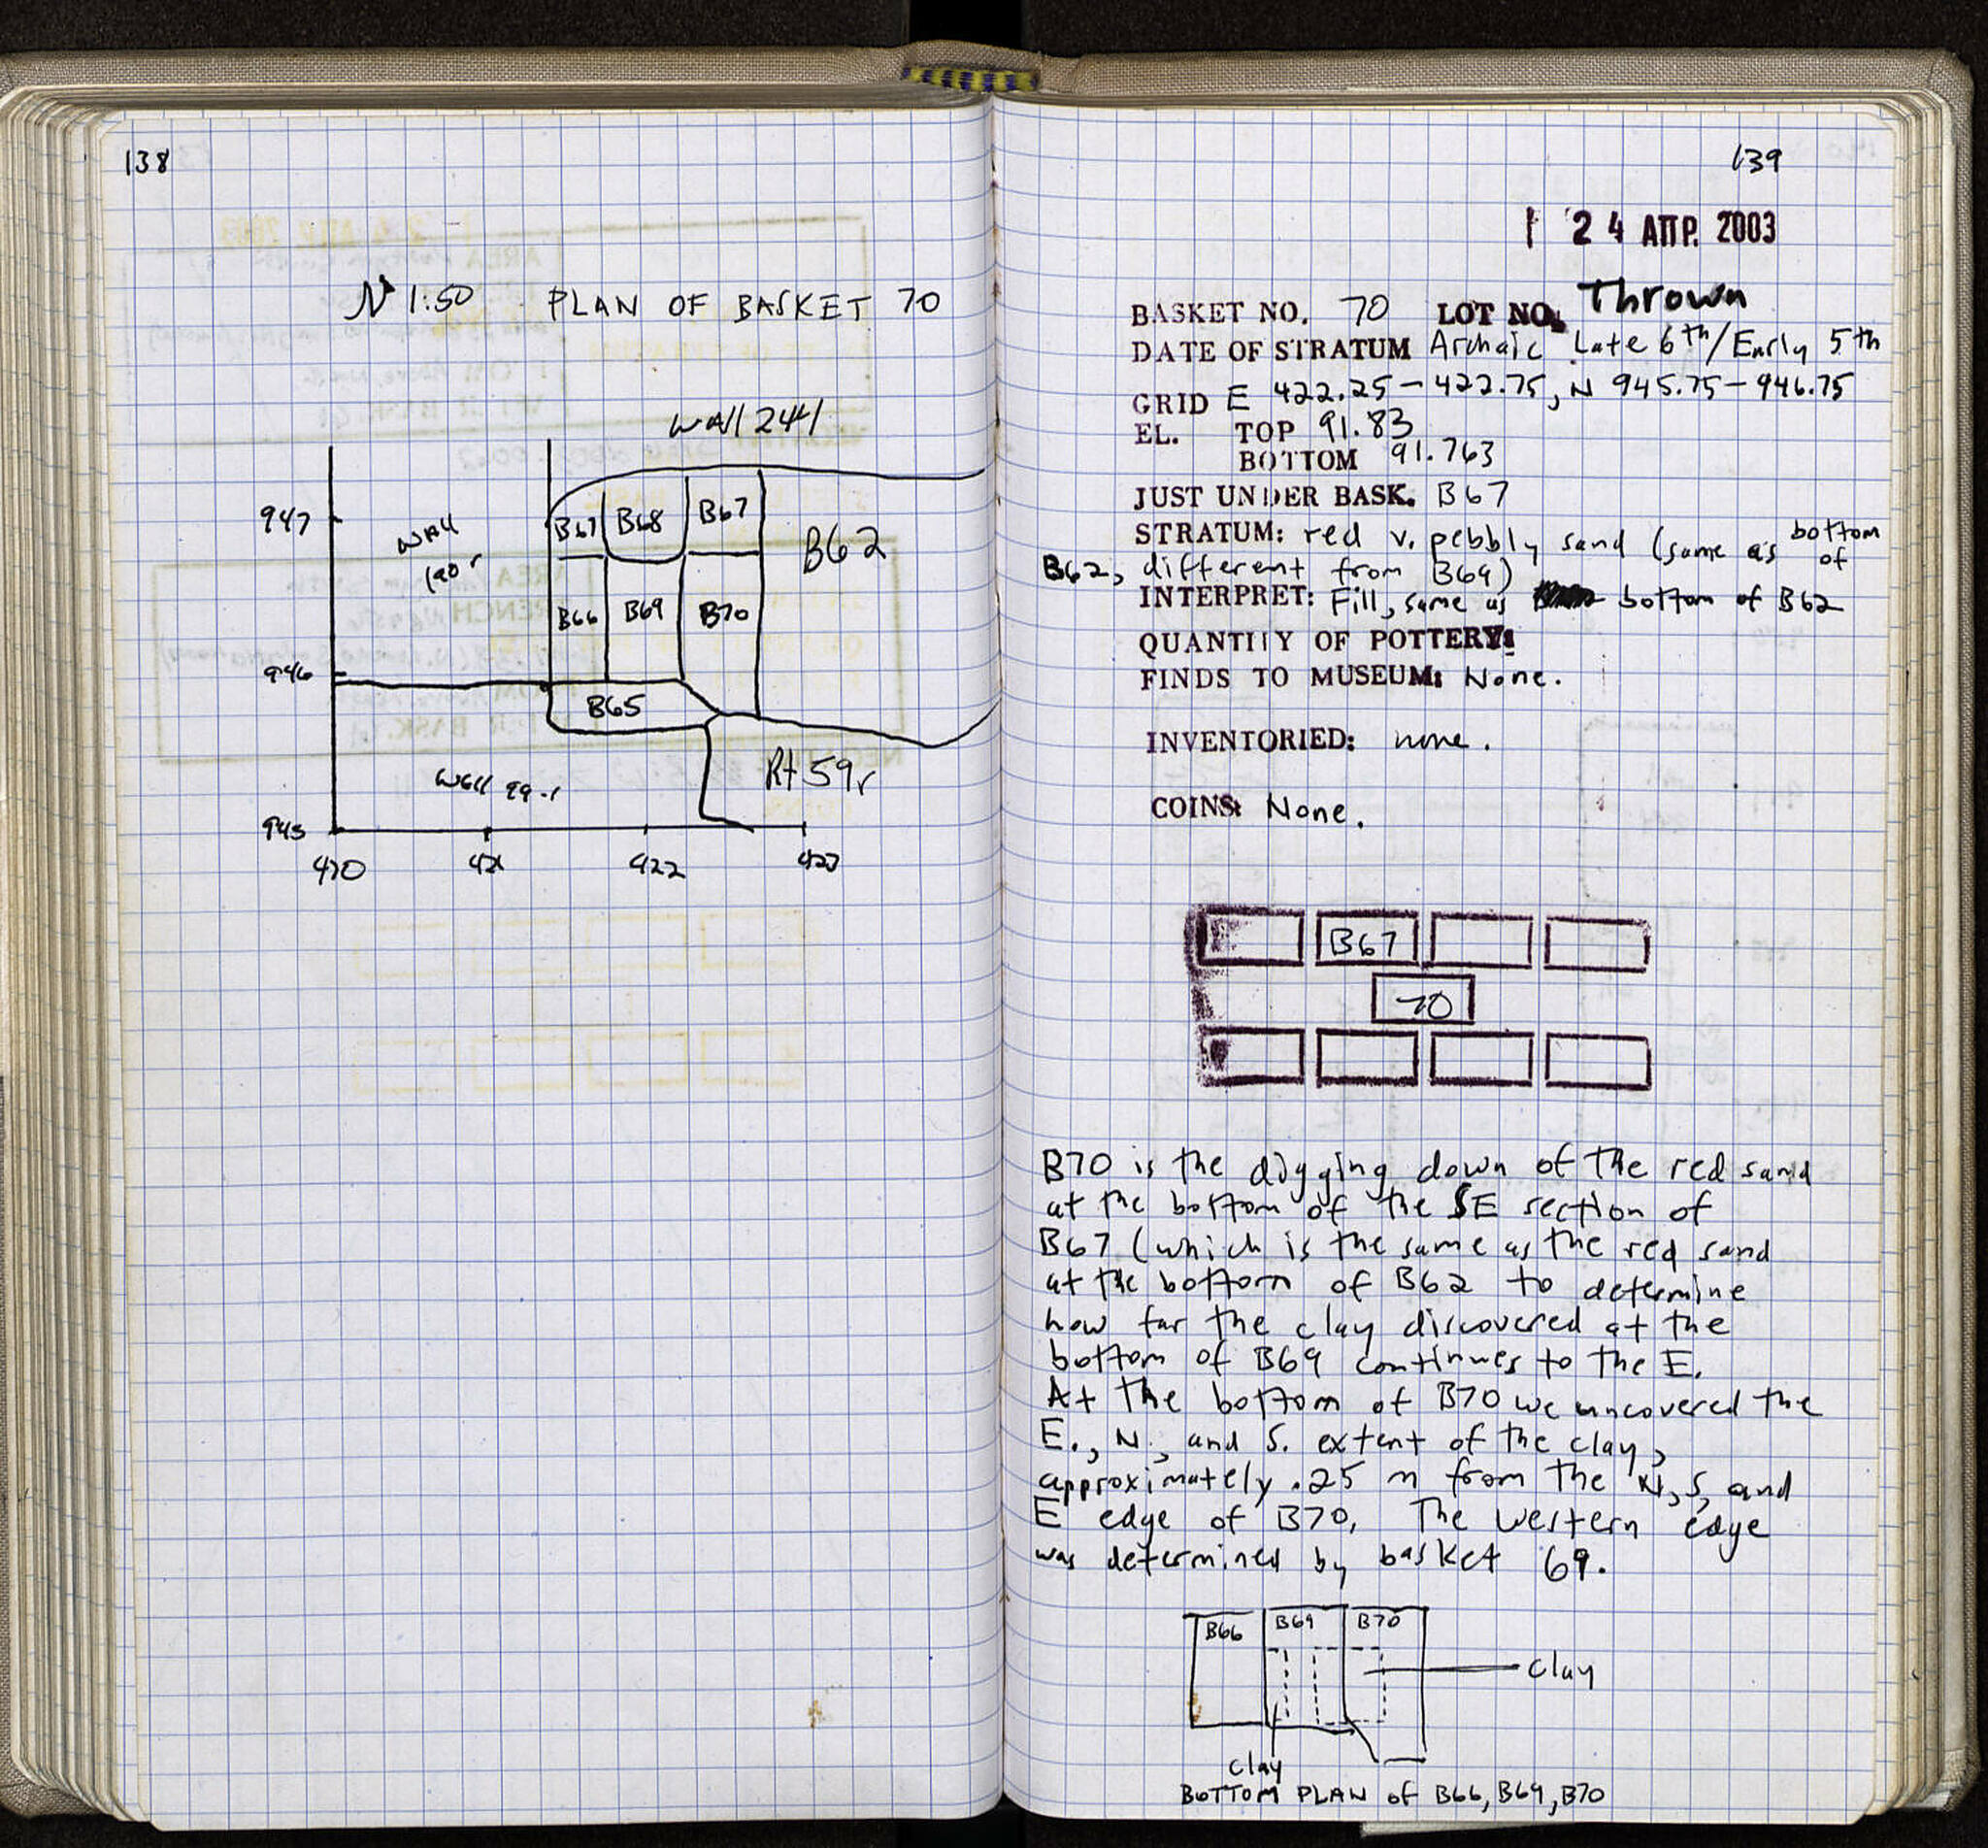 138
N 1:50 PLAN OF BASKET 70
Wall 241
947
Wall
190 r
B67
B68
B67
B62
B66
B69
B70
946
B65
Wall 99.r
Rt 59r
945
420
421
422
423
139
24 ΑΠΡ. 2003
BASKET NO. 70 LOT NO. Thrown
DATE OF STRATUM Archaic Late 6th/Early 5th
GRID E 422.25-422.75, N 945.75-946.75
EL. TOP 91.83
BOTTOM 91.763
JUST UNDER BASK. B67
STRATUM: red v. pebbly sand (same as bottom of
B62, different from B69)
INTERPRET: Fill, same as bottom of B62
QUANTITY OF POTTERY:
FINDS TO MUSEUM: None.
INVENTORIED: none.
COINS: None.
B67
70
B70 is the digging down of the red sand
at the bottom of the SE section of
B67 (which is the same as the red sand
at the bottom of B62 to determine
how far the clay discovered at the
bottom of B69 continues to the E.
At the bottom of B70 we uncovered the
E., N., and S. extent of the clay,
approximately .25 m from the N, S, and
E edge of B70. The western edge
was determined by basket 69.
B66 B69 B70
clay
clay
BOTTOM PLAN of B66, B69, B70